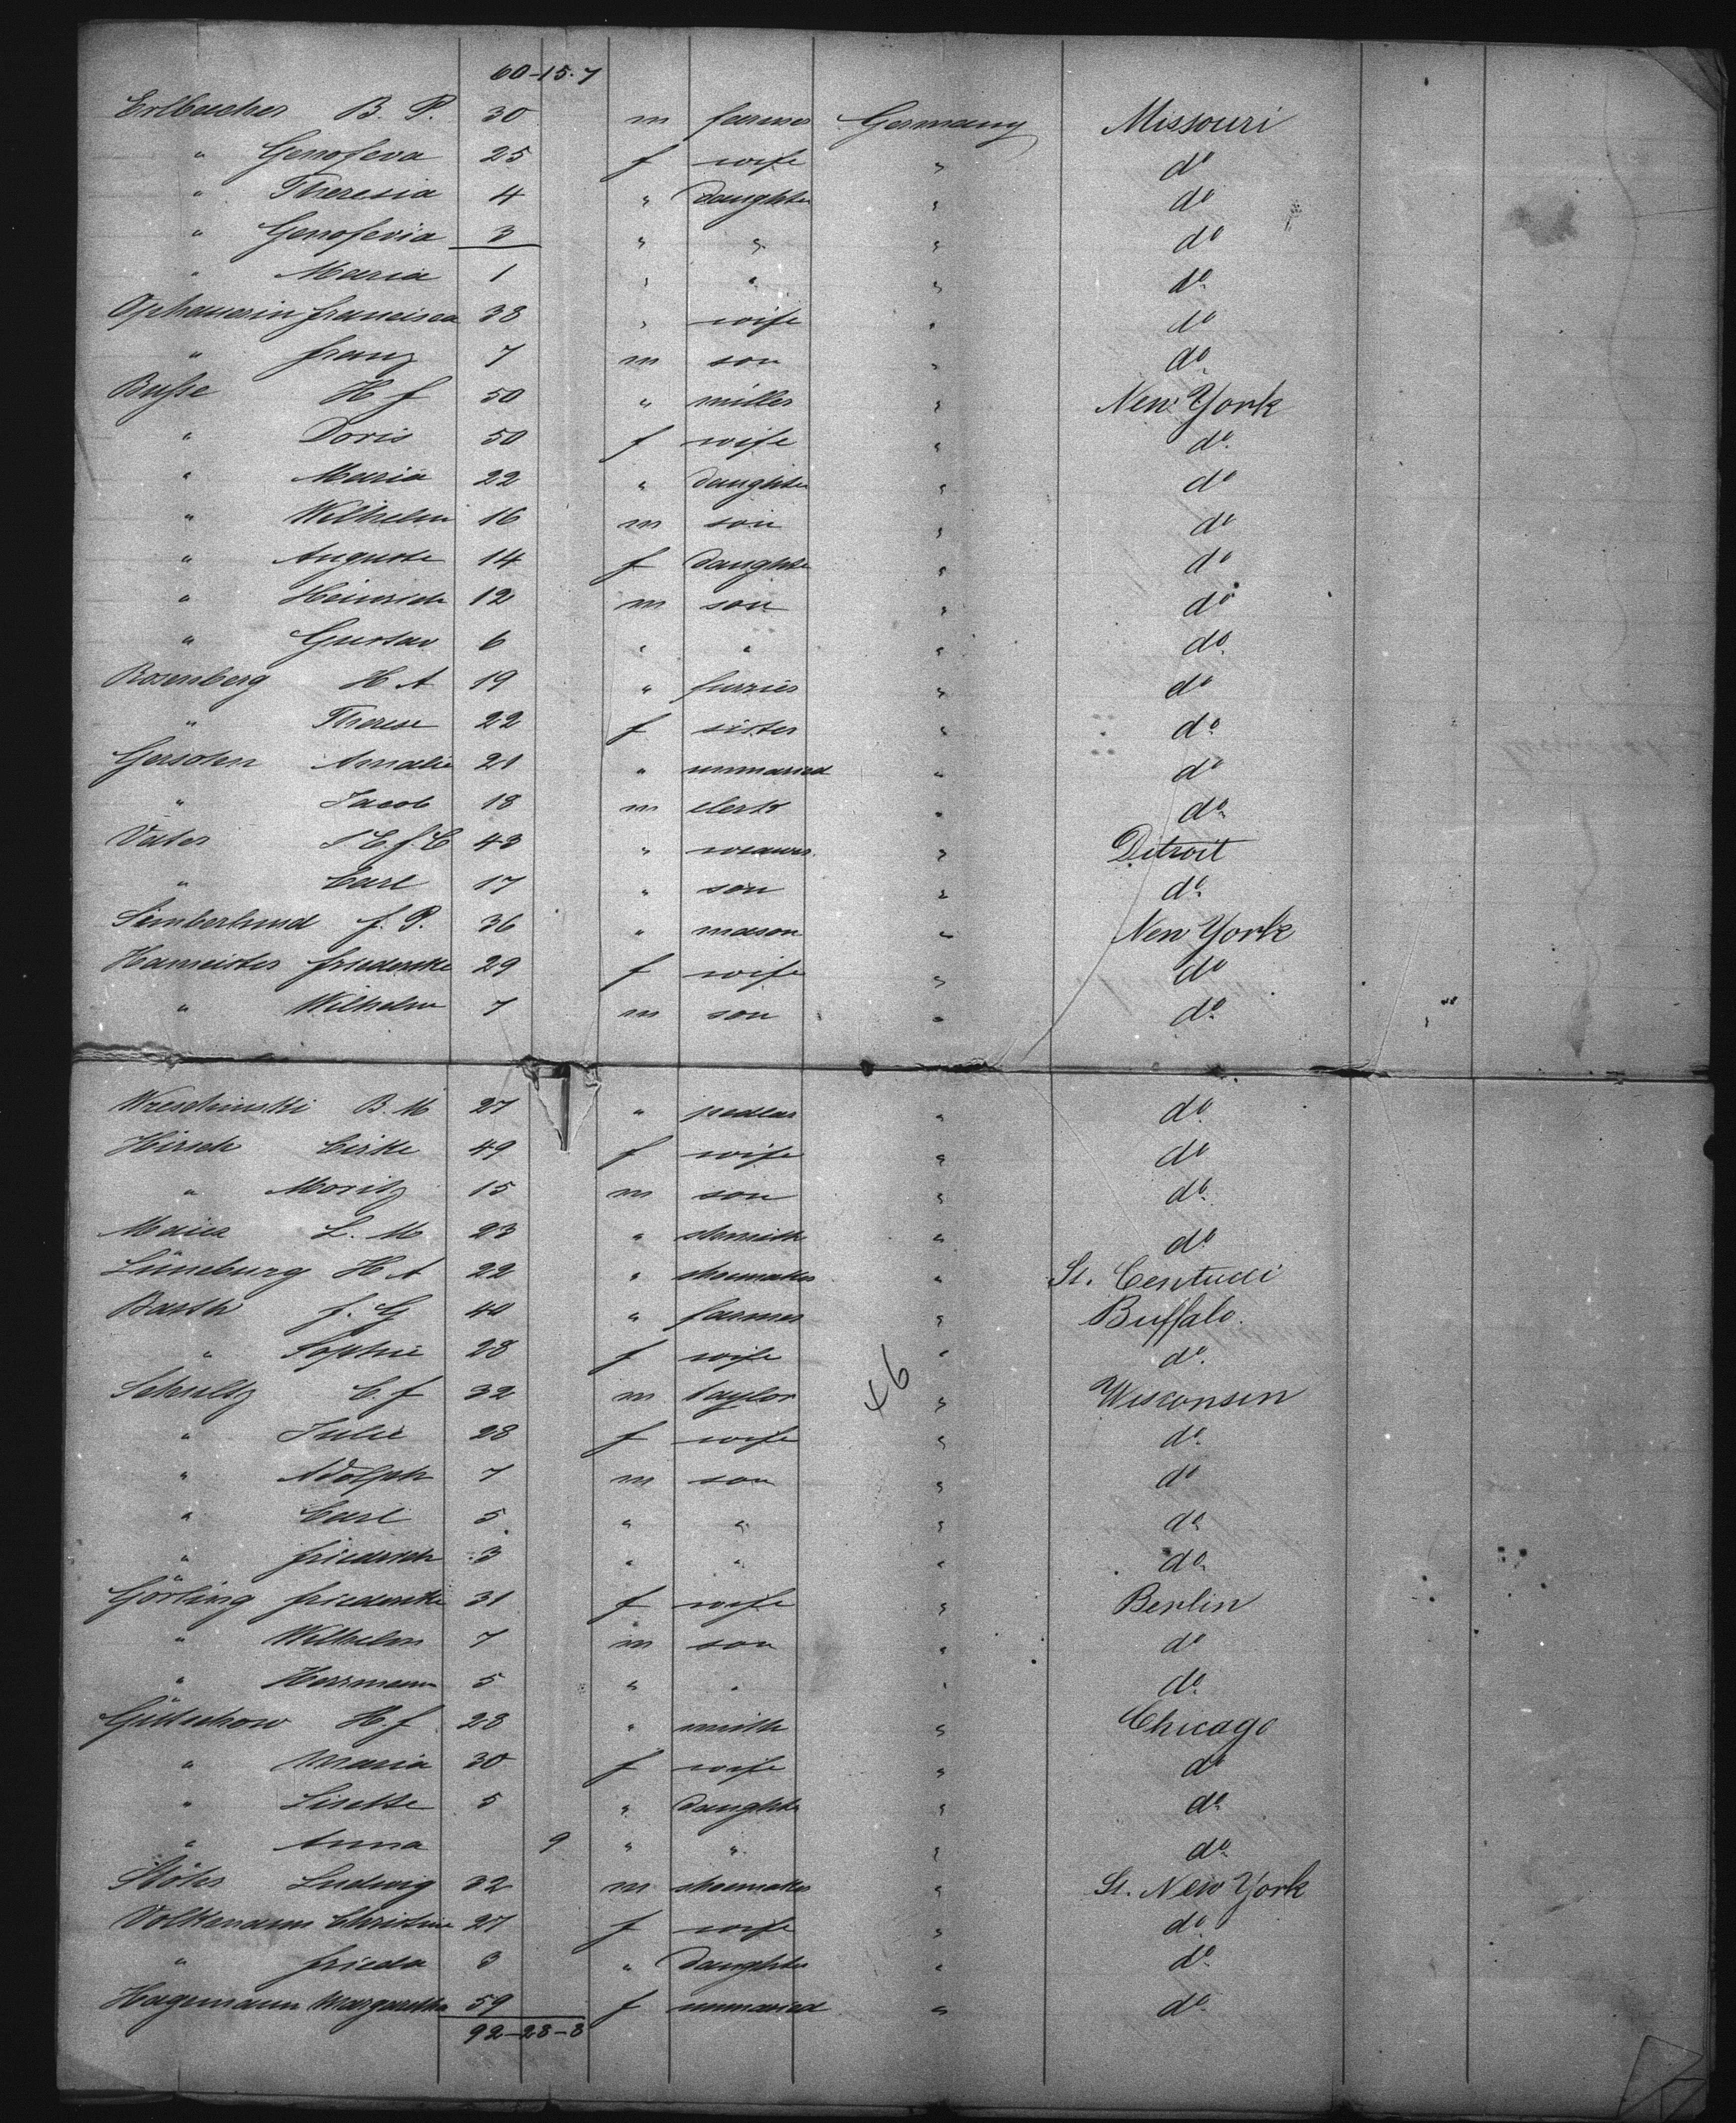 60-15.7
Erlbacher B. P. 30 m farmer Germany Missouri
" Genofeva 25 f wife " do
" Theresia 4 " daughter " do
" Genofevia 3 " " " do
" Maria 1 " " " do
Ophauerin Francisca 38 " wife " do
" Franz 7 m son " do
Buſse H F 50 " miller " New York
" Doris 50 f wife " do
" Maria 22 " daughter " do
" Wilhelm 16 m son " do
" Auguste 14 f daughter " do
" Heinrich 12 m son " do
" Gustav 6 " " " do
Rosenberg H A 19 " furrier " do
" Therese 22 f sister " do
Gersohn Amalie 21 " unmaried " do
" Jacob 18 m clerk " do
Vater F C 43 " weaver " Detroit
" Carl 17 " son " do
Timberlund J. P. 36 " mason " New York
Hameister Friederike 29 f wife " do
" Wilhelm 7 m son " do
Wreschinski B. M 27 " pedlar " do
Hirsch Cirke 49 f wife " do
" Moritz 15 m son " do
Maier L. M 23 " " do
Lüneburg H A 22 " shoemaker " St. Centucci
Barth J. G 40 " farmer " Buffalo.
" Sophie 28 f wife " do
Schultz C. F 32 m taylor " Wisconsin
46
" Julie 28 f wife " do
" Adolph 7 m son " do
" Carl 5 " " " do
" Friedrich 3 " " " do
Görling Friederike 31 f wife " Berlin
" Wilhelm 7 m son " do
" Herrmann 5 " " " do
Gütschow H. F 28 " smith " Chicago
" Maria 30 f wife " do
" Lisette 5 " daughter " do
" Anna 9 " " " do
Stöhr Ludwig 32 m shoemaker " St. New York
Volkmann Christine 27 f wife " do
" Frieda 3 " daughter " do
Hagemann Margaretha 59 f unmaried " do
92-23-8